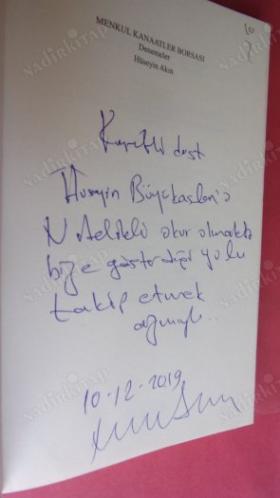 MENKUL KANAATLER BORSASI
Denemeler
Hüseyin Akın
Kıymetli dost
Hüseyin Büyükaslan'a
Nitelikli okur olmakta
bize gösterdiği yolu
takip etmek
azmiyle..
10-12-2019
NADİRKİTAP